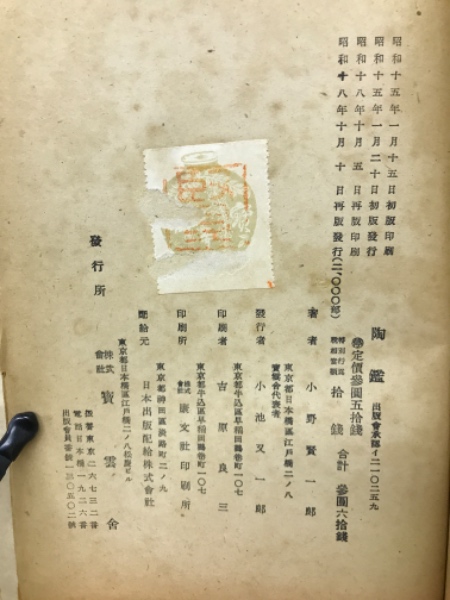 昭和十五年一月十五日初版印刷
昭和十五年一月二十日初版發行
昭和十八年十月五日再版印刷
昭和十八年十月十日再版發行(二,〇〇〇部)
陶鑑
出版會承認イ二一〇二五九
定價參圓五拾錢
特別行爲税相當額 拾錢 合計 參圓六拾錢
著者 小野賢一郎
東京都日本橋區江戸橋二ノ八
寶雲舍代表者
發行者 小池又一郎
東京都牛込區早稲田鶴巻町一〇七
印刷者 吉原良三
東京都牛込區早稲田鶴巻町一〇七
印刷所 株式會社 康文社印刷所
東京都神田區淡路町二ノ九
配給元 日本出版配給株式會社
東京都日本橋區江戸橋二ノ八
發行所 株式會社 寶雲舍
振替東京二六七三二番
電話日本橋一九二六番
出版會員番號一三〇五〇二號